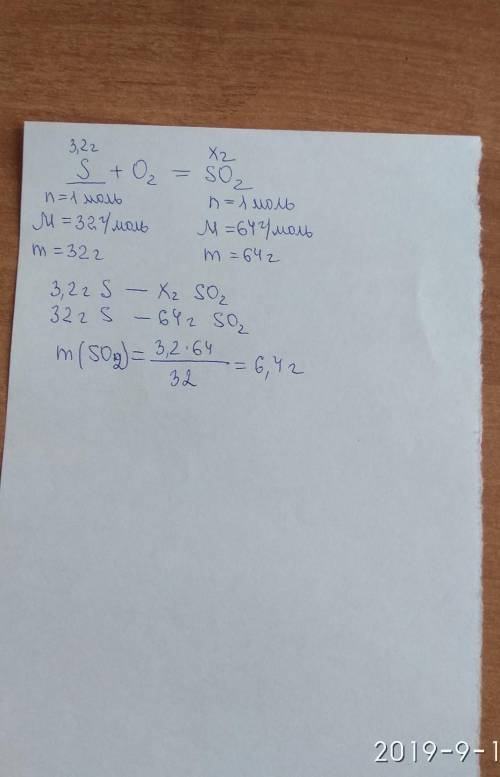 3,2г хг
S + O₂ = SO₂
n = 1 моль n = 1 моль
M = 32г/моль M = 64г/моль
m = 32г m = 64г
3,2г S — хг SO₂
32г S — 64г SO₂
m(SO₂) = 3,2·64 = 6,4г
32
2019-9-1